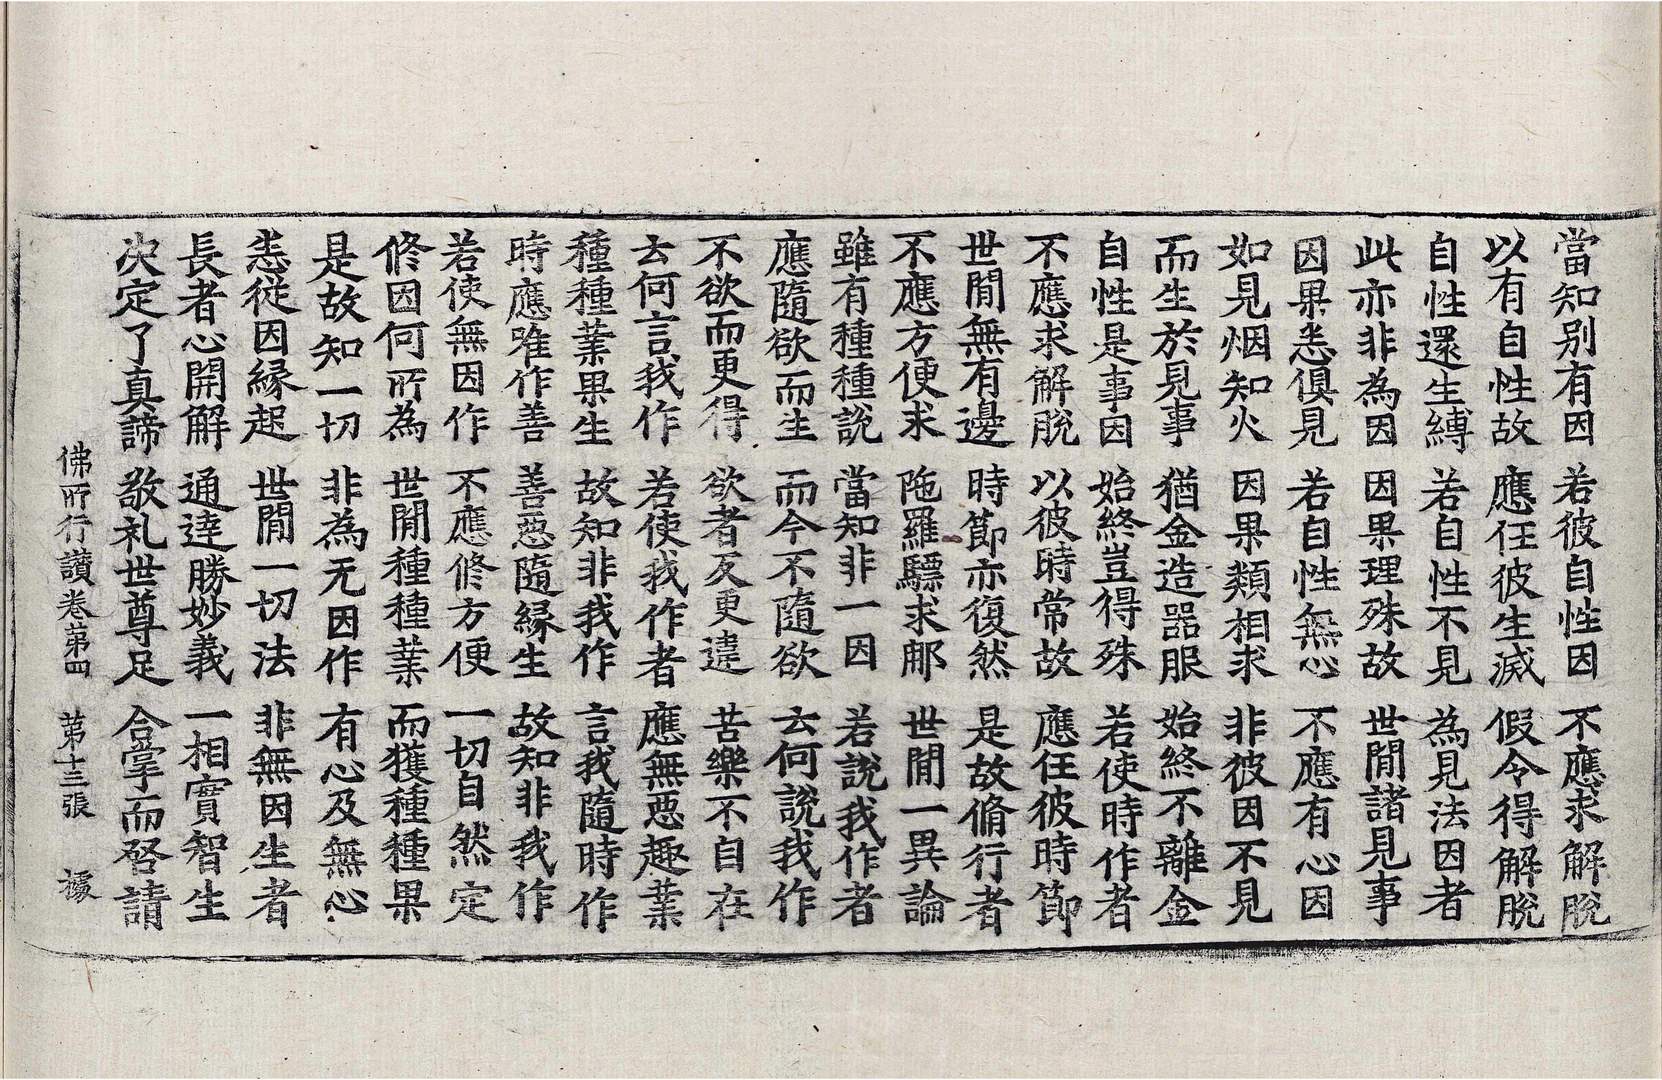 當知别有因 若彼自性因 不應求解脫
以有自性故 應任彼生滅 假令得解脫
自性還生縛 若自性不見 為見法因者
此亦非為因 因果理殊故 世間諸見事
因果悉俱見 若自性無心 不應有心因
如見烟知火 因果類相求 非彼因不見
而生於見事 猶金造器服 始終不離金
自性是事因 始終豈得殊 若使時作者
不應求解脫 以彼時常故 應任彼時節
世間無有邊 時節亦復然 是故脩行者
不應方便求 陁羅驃求那 世間一異論
雖有種種說 當知非一因 若說我作者
應隨欲而生 而今不隨欲 云何說我作
不欲而更得 欲者反更違 苦樂不自在
云何言我作 若使我作者 應無惡趣業
種種業果生 故知非我作 言我隨時作
時應唯作善 善惡隨緣生 故知非我作
若使無因作 不應修方便 一切自然定
修因何所為 世間種種業 而獲種種果
是故知一切 非為无因作 有心及無心
悉從因緣起 世間一切法 非無因生者
長者心開解 通達勝妙義 一相實智生
决定了真諦 敬礼世尊足 合掌而啓請
佛所行讚卷第四 第十三張 㯫